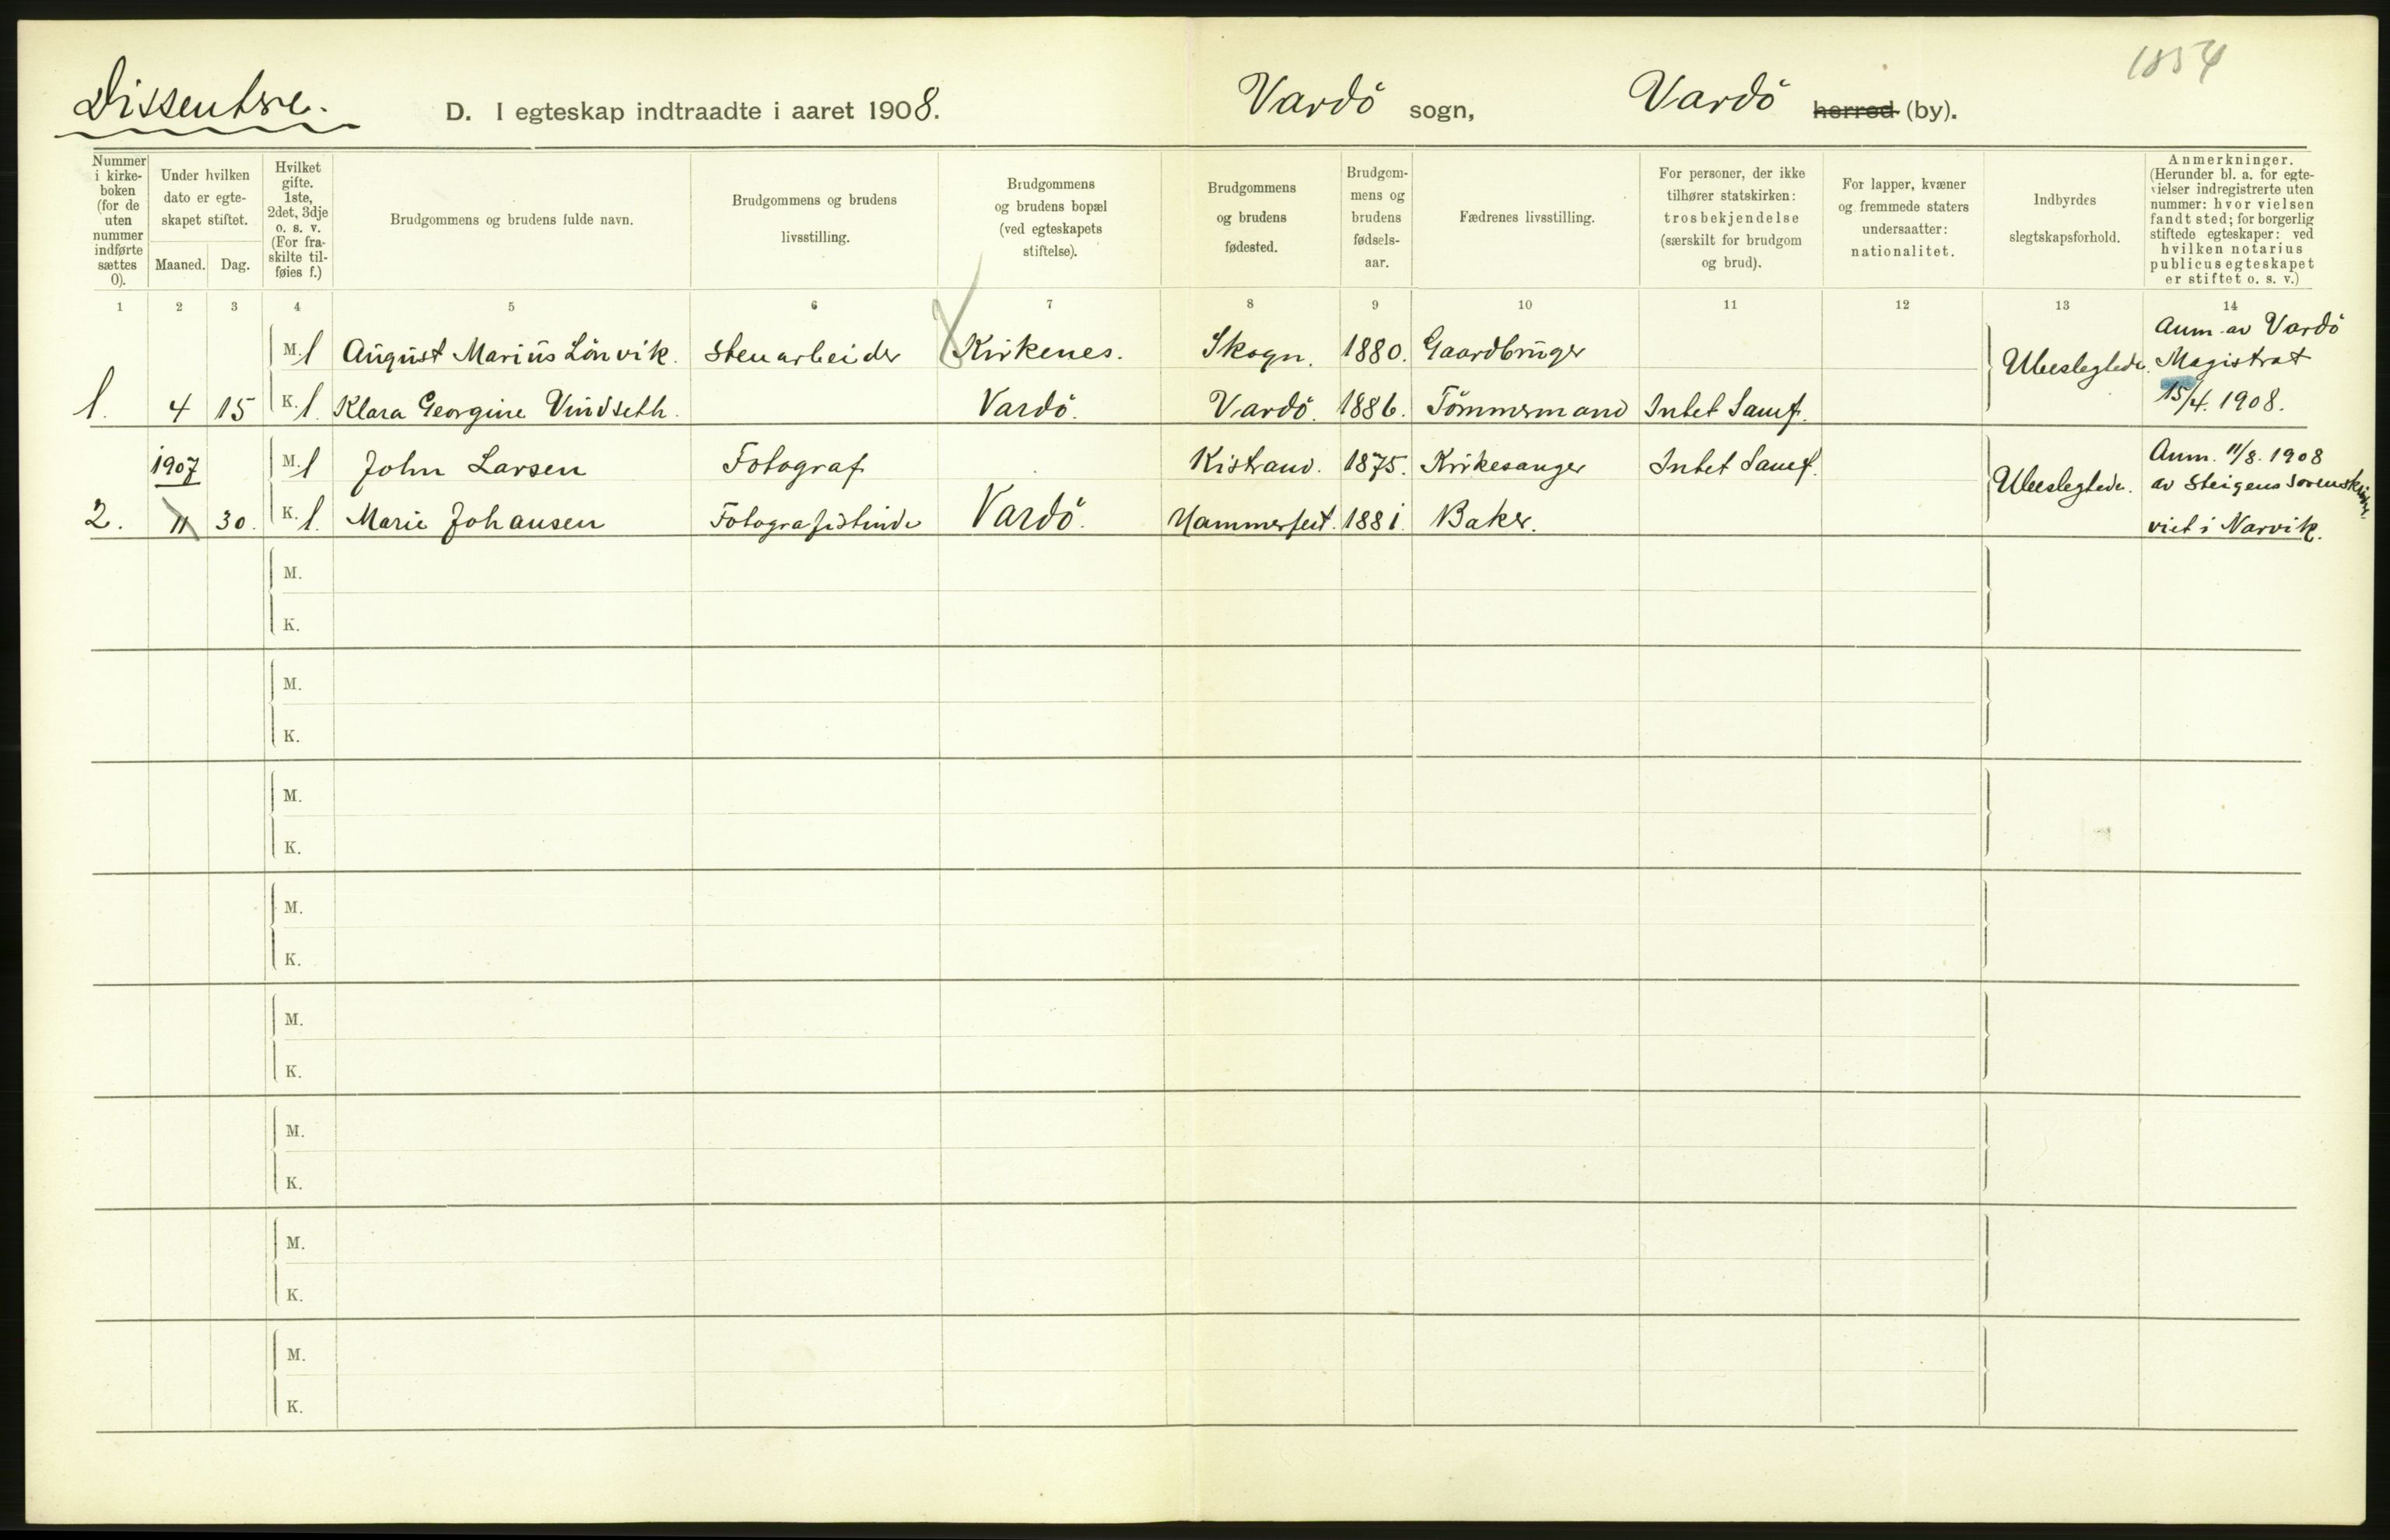 1854
Dissentere. D. I egteskap indtraadte i aaret 1908. Vardö sogn, Vardö herred (by).
Nummer i kirke-boken (for de uten nummer indførte sættes 0).
Under hvilken dato er egte-skapet stiftet.
Maaned. Dag.
Hvilket gifte. 1ste, 2det, 3dje o. s. v. (For fra-skilte til-føies f.)
Brudgommens og brudens fulde navn.
Brudgommens og brudens livsstilling.
Brudgommens og brudens bopæl (ved egteskapets stiftelse).
Brudgommens og brudens fødested.
Brudgom-mens og brudens fødsels-aar.
Fædrenes livsstilling.
For personer, der ikke tilhører statskirken: trosbekjendelse (særskilt for brudgom og brud).
For lapper, kvæner og fremmede staters undersaatter: nationalitet.
Indbyrdes slegtskapsforhold.
Anmerkninger. (Herunder bl. a. for egte-vielser indregistrerte uten nummer: hvor vielsen fandt sted; for borgerlig stiftede egteskaper: ved hvilken notarius publicus egteskapet er stiftet o. s. v.)
1 2 3 4 5 6 7 8 9 10 11 12 13 14
M. 1 August Marius Lönvik. Stenarbeider Kirkenes. Skogn. 1880. Gaardbruger Ubeslegtede. Anm. av Vardö Magistrat
1. 4 15 K. 1. Klara Georgine Vindseth. Vardö. Vardö. 1886. Tömmermand Intet Samf. 15/4. 1908.
1907 M. 1 John Larsen Fotograf Kistrand. 1875. Kirkesanger Intet Samf. Ubeslegtede. Anm. 11/8. 1908 av Steigens Sorenskriver.
2. 11 30. K. 1. Marie Johansen Fotografistinde Vardö. Hammerfest. 1881. Baker. viet i Narvik.
M.
K.
M.
K.
M.
K.
M.
K.
M.
K.
M.
K.
M.
K.
M.
K.